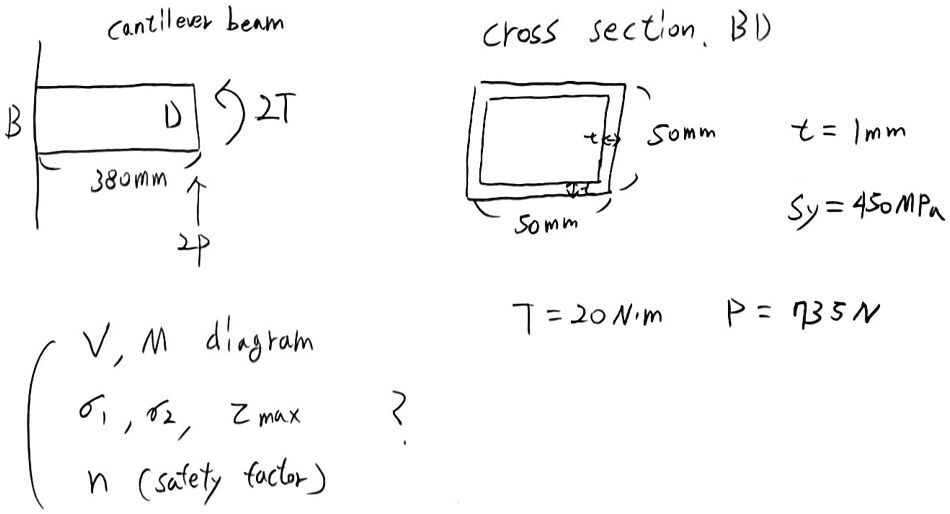 cantilever beam
B D 2T
380mm
2P
cross section. BD
t 50mm
t
50mm
t = 1mm
Sy = 450MPa
T = 20N·m P = 735N
V, M diagram
σ1, σ2, τmax ?
n (safety factor)